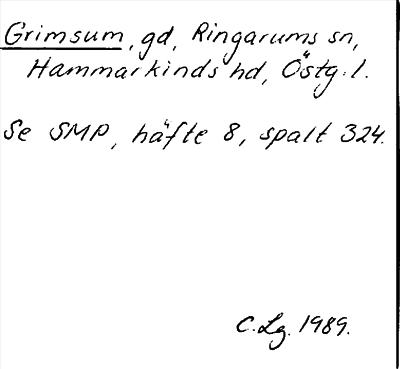 Grimsum, gd, Ringarums sn,
Hammarkinds hd, Östg. l.
Se SMP, häfte 8, spalt 324.
C.Lg. 1989.